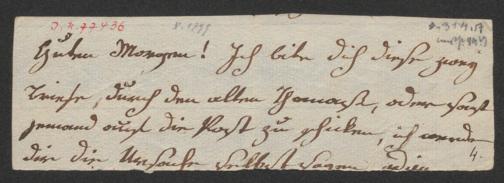 J. N. 77436
Guten Morgen! Ich bitte dich diese zwey
Briefe, durch den alten Thomasl, oder sonst
jemand auf die Post zu schicken, ich werde
dir die Ursache selbst sagen
4.